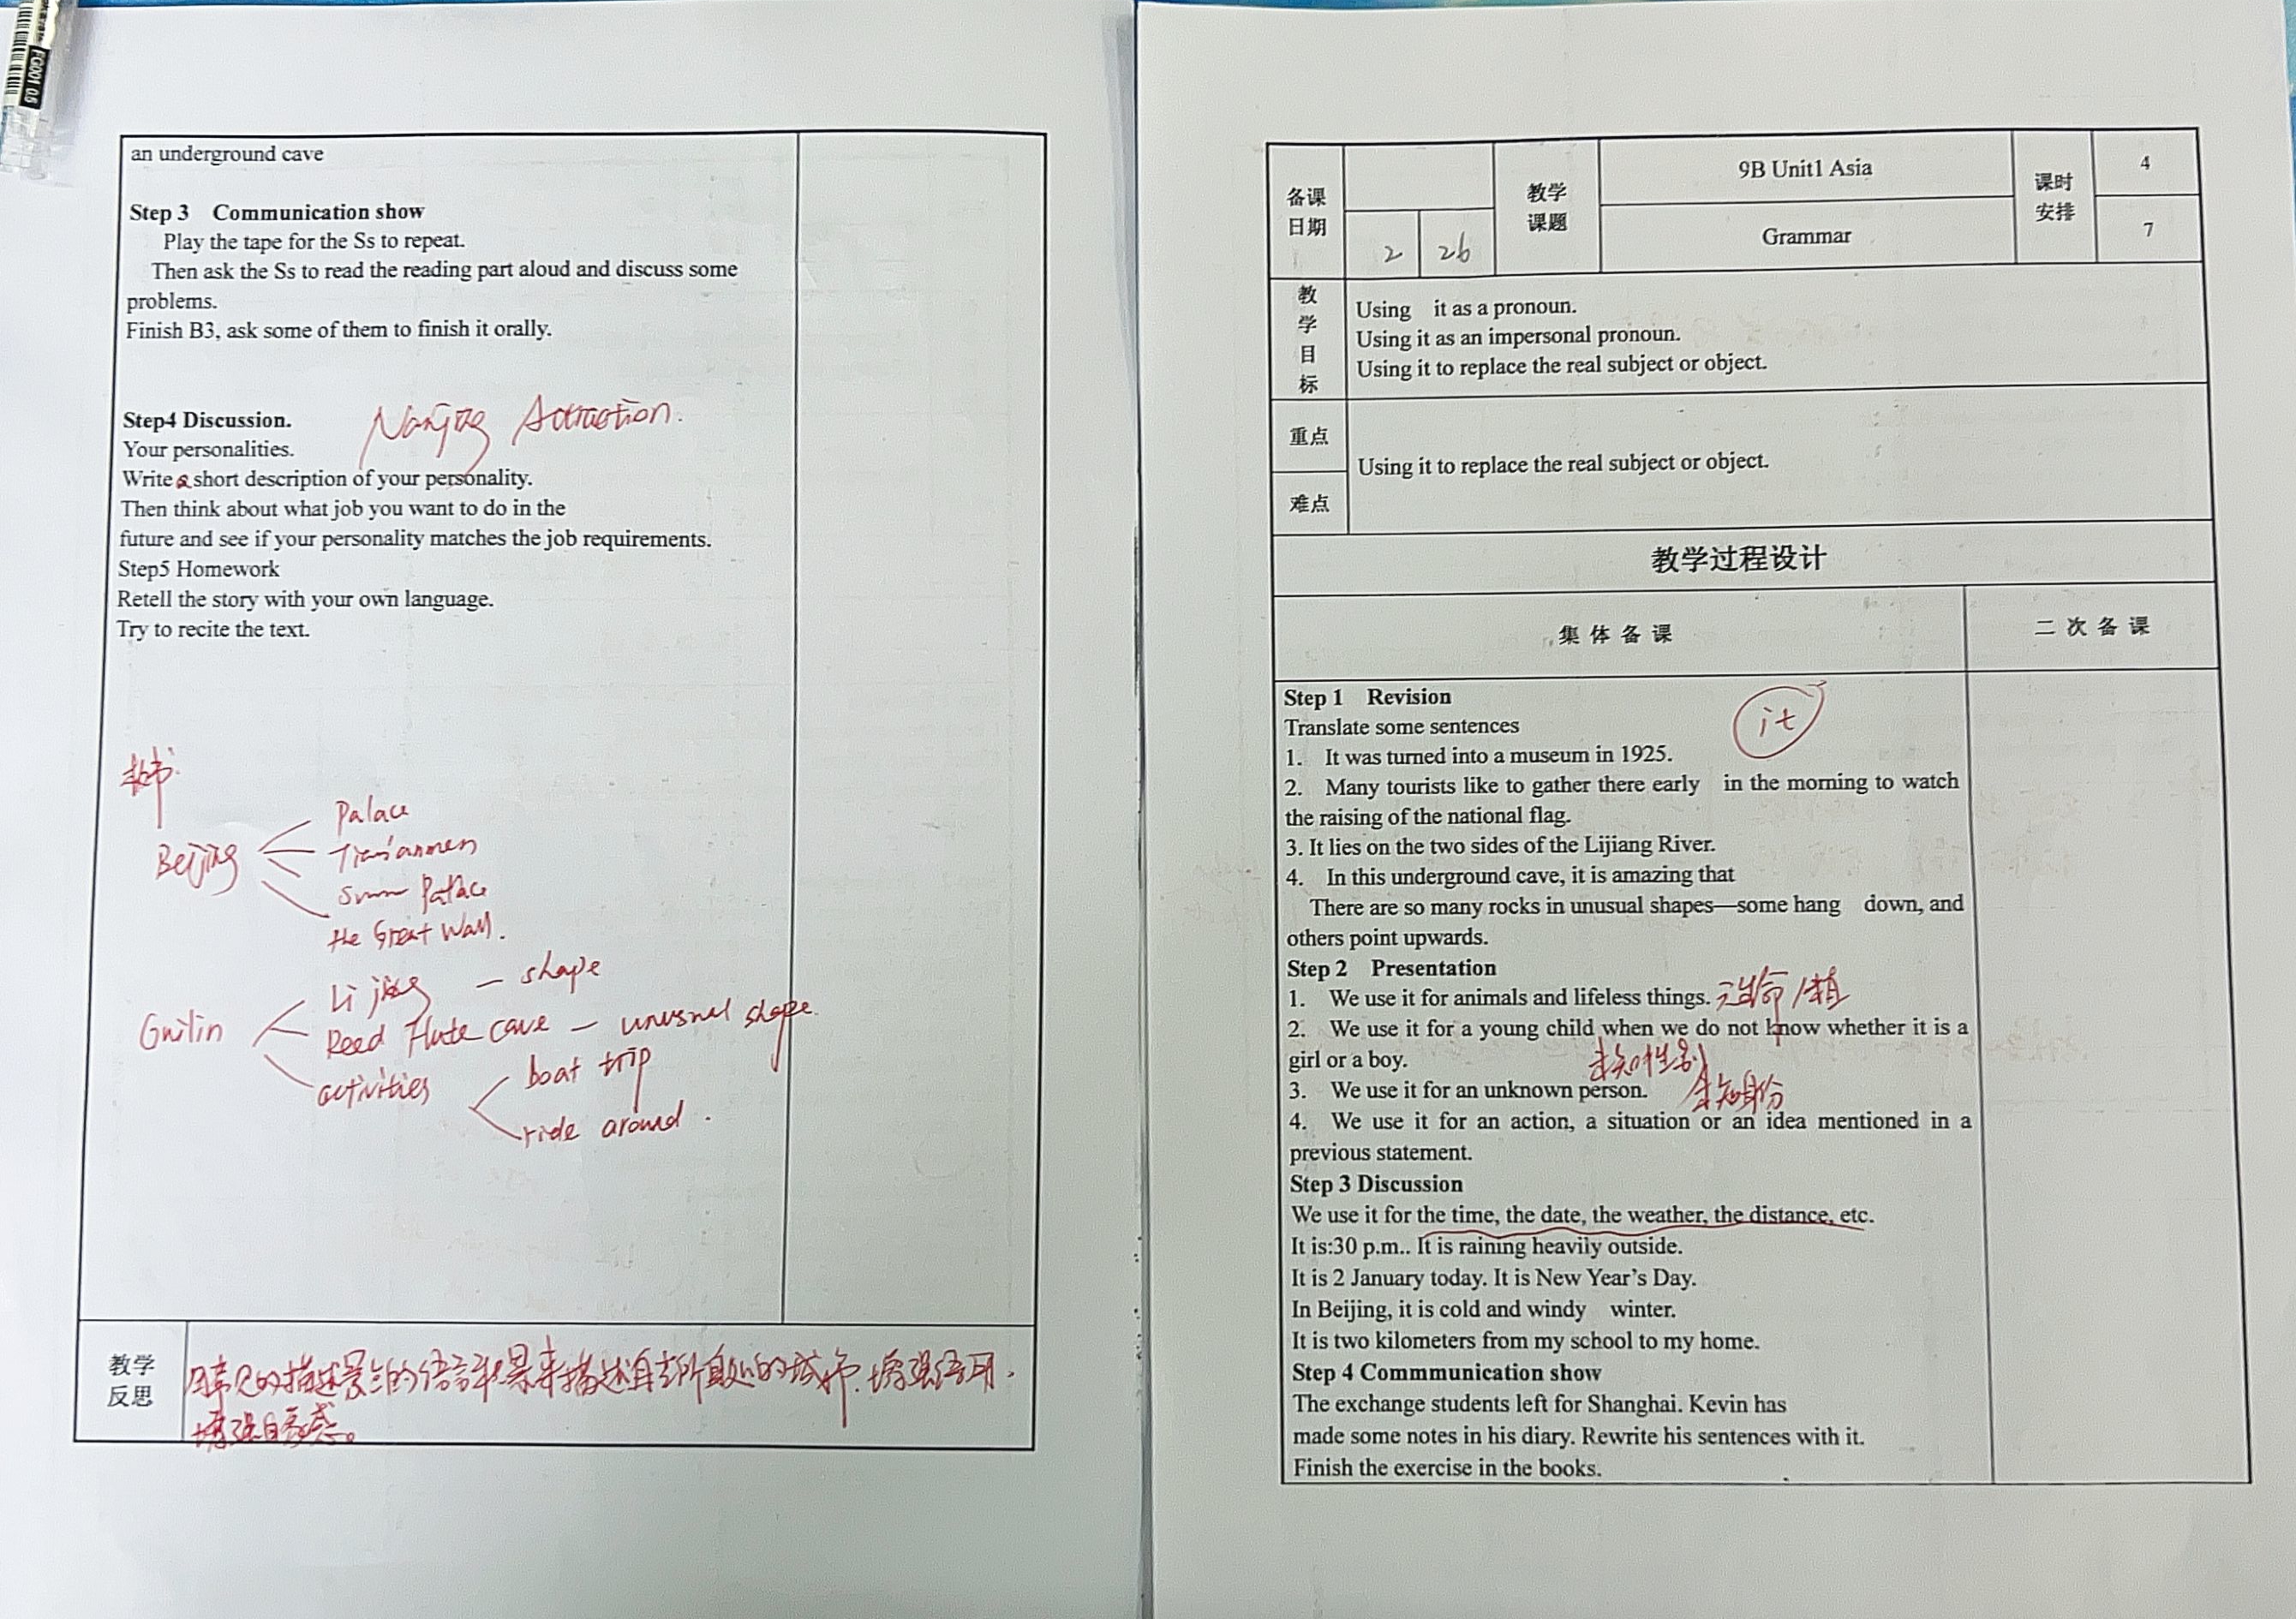 FG001 0.5
an underground cave
Step 3 Communication show
Play the tape for the Ss to repeat.
Then ask the Ss to read the reading part aloud and discuss some
problems.
Finish B3, ask some of them to finish it orally.
Nanjing Attraction.
Step4 Discussion.
Your personalities.
Write a short description of your personality.
Then think about what job you want to do in the
future and see if your personality matches the job requirements.
Step5 Homework
Retell the story with your own language.
Try to recite the text.
Beijing
Palace
Tian'anmen
Palace
the Great Wall.
Guilin
Li jiang — shape
Reed Flute cave — unusual shape
activities
boat trip
ride around.
教学
反思
的描述景点的语言来描述自己所身处的城市.增强语用.
增强自豪感。
备课
日期
2 26
教学
课题
9B Unit1 Asia
Grammar
课时
安排
4
7
教
学
目
标
Using it as a pronoun.
Using it as an impersonal pronoun.
Using it to replace the real subject or object.
重点
难点
Using it to replace the real subject or object.
教学过程设计
集体备课
二次备课
Step 1 Revision
it
Translate some sentences
1. It was turned into a museum in 1925.
2. Many tourists like to gather there early in the morning to watch
the raising of the national flag.
3. It lies on the two sides of the Lijiang River.
4. In this underground cave, it is amazing that
There are so many rocks in unusual shapes—some hang down, and
others point upwards.
Step 2 Presentation
1. We use it for animals and lifeless things. 无生命/植
2. We use it for a young child when we do not know whether it is a
girl or a boy. 未知性别
3. We use it for an unknown person. 未知身份
4. We use it for an action, a situation or an idea mentioned in a
previous statement.
Step 3 Discussion
We use it for the time, the date, the weather, the distance, etc.
It is:30 p.m.. It is raining heavily outside.
It is 2 January today. It is New Year's Day.
In Beijing, it is cold and windy winter.
It is two kilometers from my school to my home.
Step 4 Commmunication show
The exchange students left for Shanghai. Kevin has
made some notes in his diary. Rewrite his sentences with it.
Finish the exercise in the books.